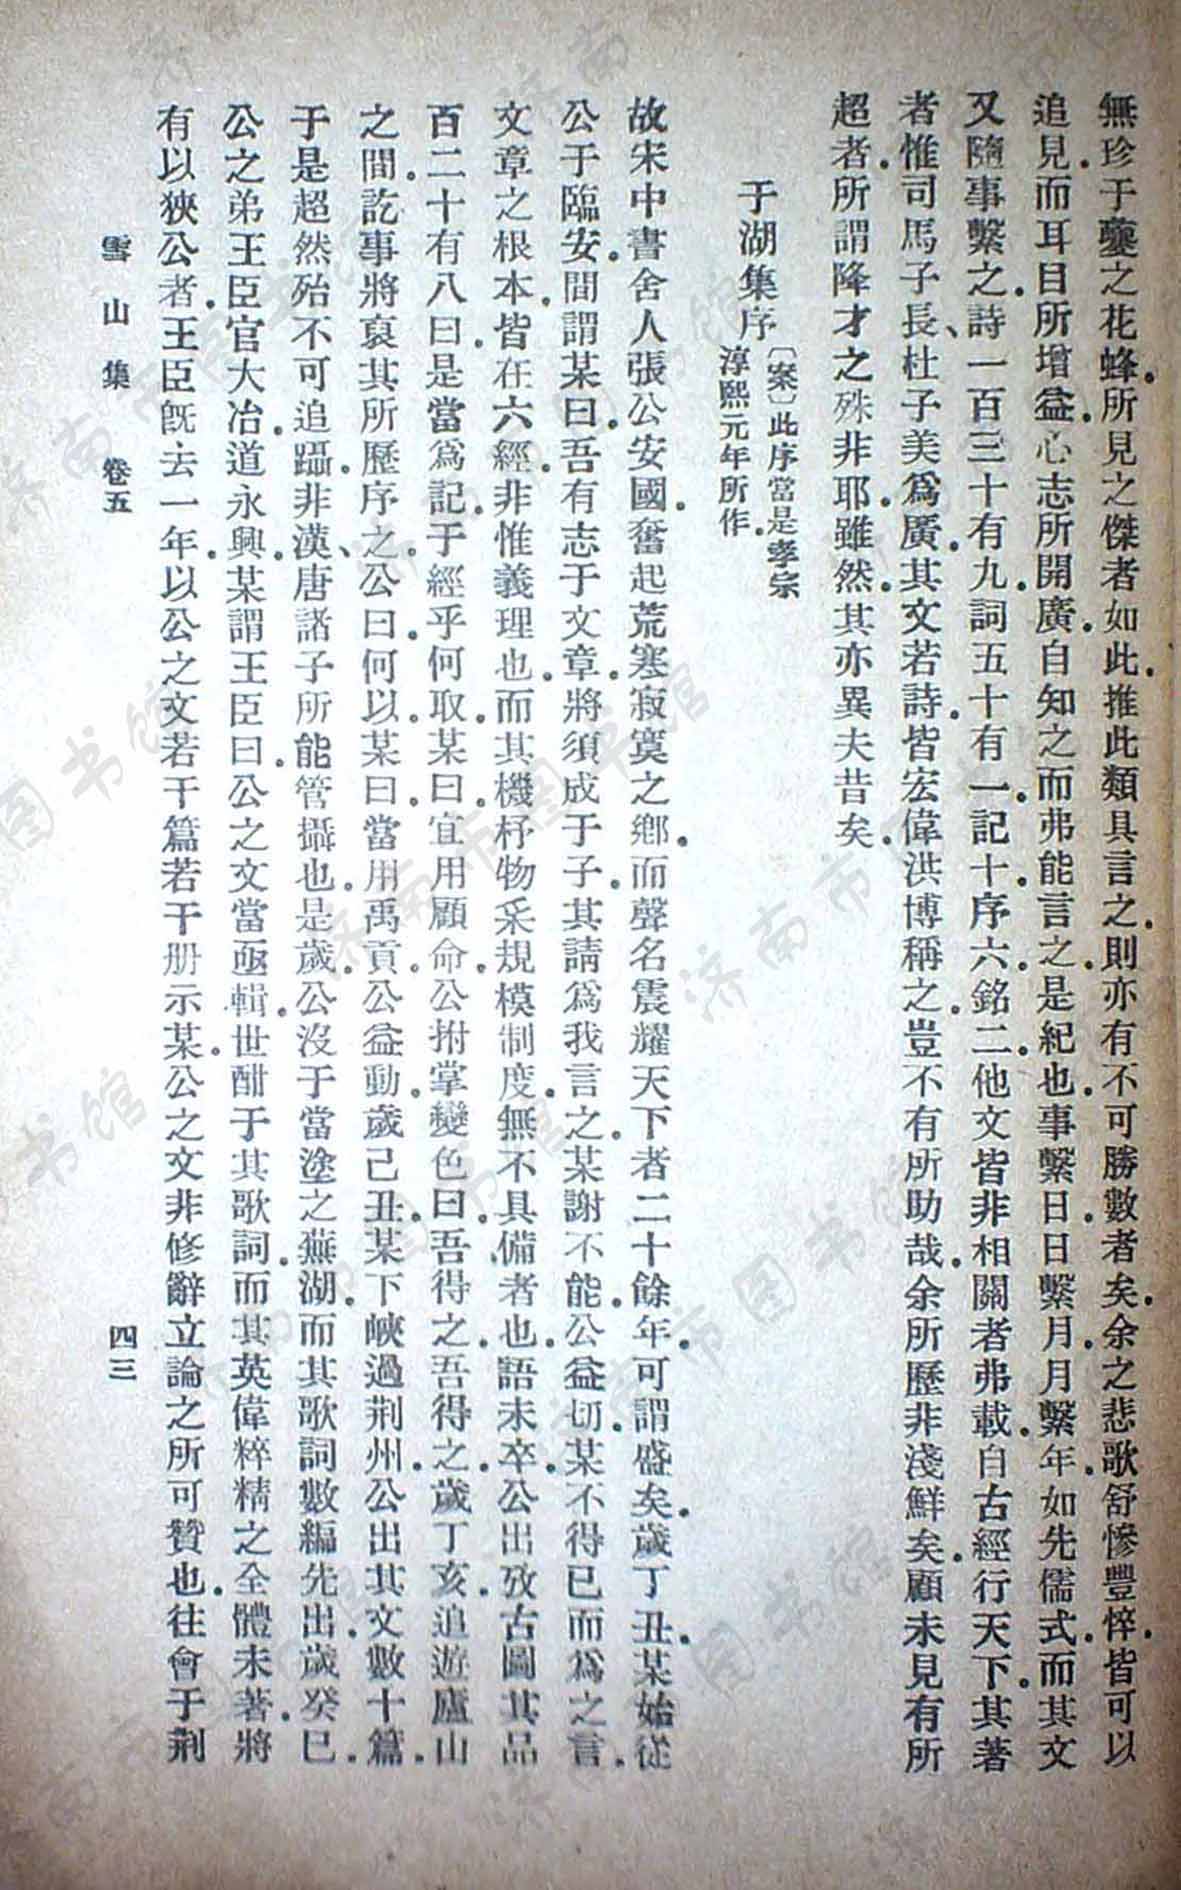 無珍于蘷之花蜂所見之傑者如此推此類具言之則亦有不可勝數者矣余之悲歌舒慘豐悴皆可以
追見而耳目所增益心志所開廣自知之而弗能言之是紀也事繫日日繫月月繫年如先儒式而其文
又隨事繫之詩一百三十有九詞五十有一記十序六銘二他文皆非相關者弗載自古經行天下其著
者惟司馬子長、杜子美爲廣其文若詩皆宏偉洪博稱之豈不有所助哉余所歷非淺鮮矣顧未見有所
超者所謂降才之殊非耶雖然其亦異夫昔矣
于湖集序
〔案〕此序當是孝宗
淳熙元年所作
故宋中書舍人張公安國奮起荒寒寂寞之鄉而聲名震耀天下者二十餘年可謂盛矣歲丁丑某始從
公于臨安間謂某曰吾有志于文章將須成于子其請爲我言之某謝不能公益切某不得已而爲之言
文章之根本皆在六經非惟義理也而其機杼物采規模制度無不具備者也語未卒公出攷古圖其品
百二十有八曰是當爲記于經乎何取某曰宜用顧命公拊掌變色曰吾得之吾得之歲丁亥追遊廬山
之間訖事將裒其所歷序之公曰何以某曰當用禹貢公益動歲己丑某下峽過荆州公出其文數十篇
于是超然殆不可追躡非漢、唐諸子所能管攝也是歲公沒于當塗之蕪湖而其歌詞數編先出歲癸巳
公之弟王臣官大冶道永興某謂王臣曰公之文當亟輯世酣于其歌詞而其英偉粹精之全體未著將
有以狹公者王臣旣去一年以公之文若干篇若干册示某公之文非修辭立論之所可贊也往會于荆
雪山集 卷五 四三
济南市图书馆